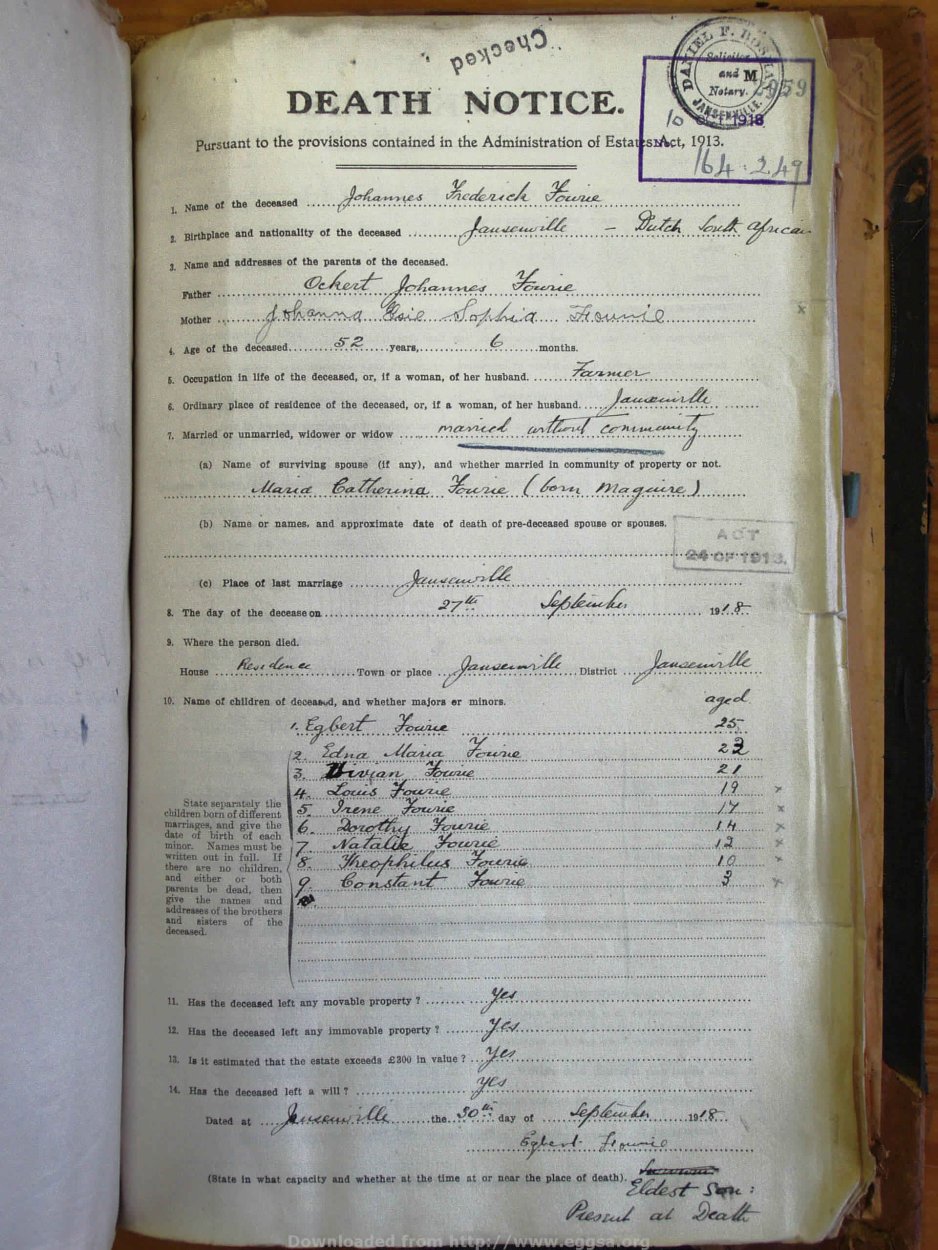 Checked
DEATH NOTICE.
DANIEL F. BOSMAN
Solicitor
and
Notary.
JANSENVILLE.
M
2959
10 OCT 1918
Pursuant to the provisions contained in the Administration of Estates Act, 1913.
164. 249
1. Name of the deceased Johannes Frederick Fourie
2. Birthplace and nationality of the deceased Jansenville – Dutch South African
3. Name and addresses of the parents of the deceased.
Father Ockert Johannes Fourie
Mother Johanna Elsie Sophia Fourie x
4. Age of the deceased 52 years, 6 months.
5. Occupation in life of the deceased, or, if a woman, of her husband. Farmer
6. Ordinary place of residence of the deceased, or, if a woman, of her husband. Jansenville
7. Married or unmarried, widower or widow married without community
(a) Name of surviving spouse (if any), and whether married in community of property or not.
Maria Catherina Fourie (born Maguire)
(b) Name or names, and approximate date of death of pre-deceased spouse or spouses.
ACT
24 OF 1913.
(c) Place of last marriage Jansenville
8. The day of the decease on 27th September 1918
9. Where the person died.
House Residence Town or place Jansenville District Jansenville
10. Name of children of deceased, and whether majors or minors. aged
1. Egbert Fourie 25
2. Edna Maria Fourie 23
3. Vivian Fourie 21
4. Louis Fourie 19 x
5. Irene Fourie 17 x
6. Dorothy Fourie 14 x
7. Natalie Fourie 12 x
8. Theophilus Fourie 10 x
9. Constant Fourie 3 x
State separately the
children born of different
marriages, and give the
date of birth of each
minor. Names must be
written out in full. If
there are no children,
and either or both
parents be dead, then
give the names and
addresses of the brothers
and sisters of the
deceased.
11. Has the deceased left any movable property? Yes
12. Has the deceased left any immovable property? Yes
13. Is it estimated that the estate exceeds £300 in value? Yes
14. Has the deceased left a will? yes
Dated at Jansenville the 30th day of September 1918
Egbert Fourie
(State in what capacity and whether at the time at or near the place of death). Eldest Son:
Present at Death
Downloaded from http://www.eggsa.org